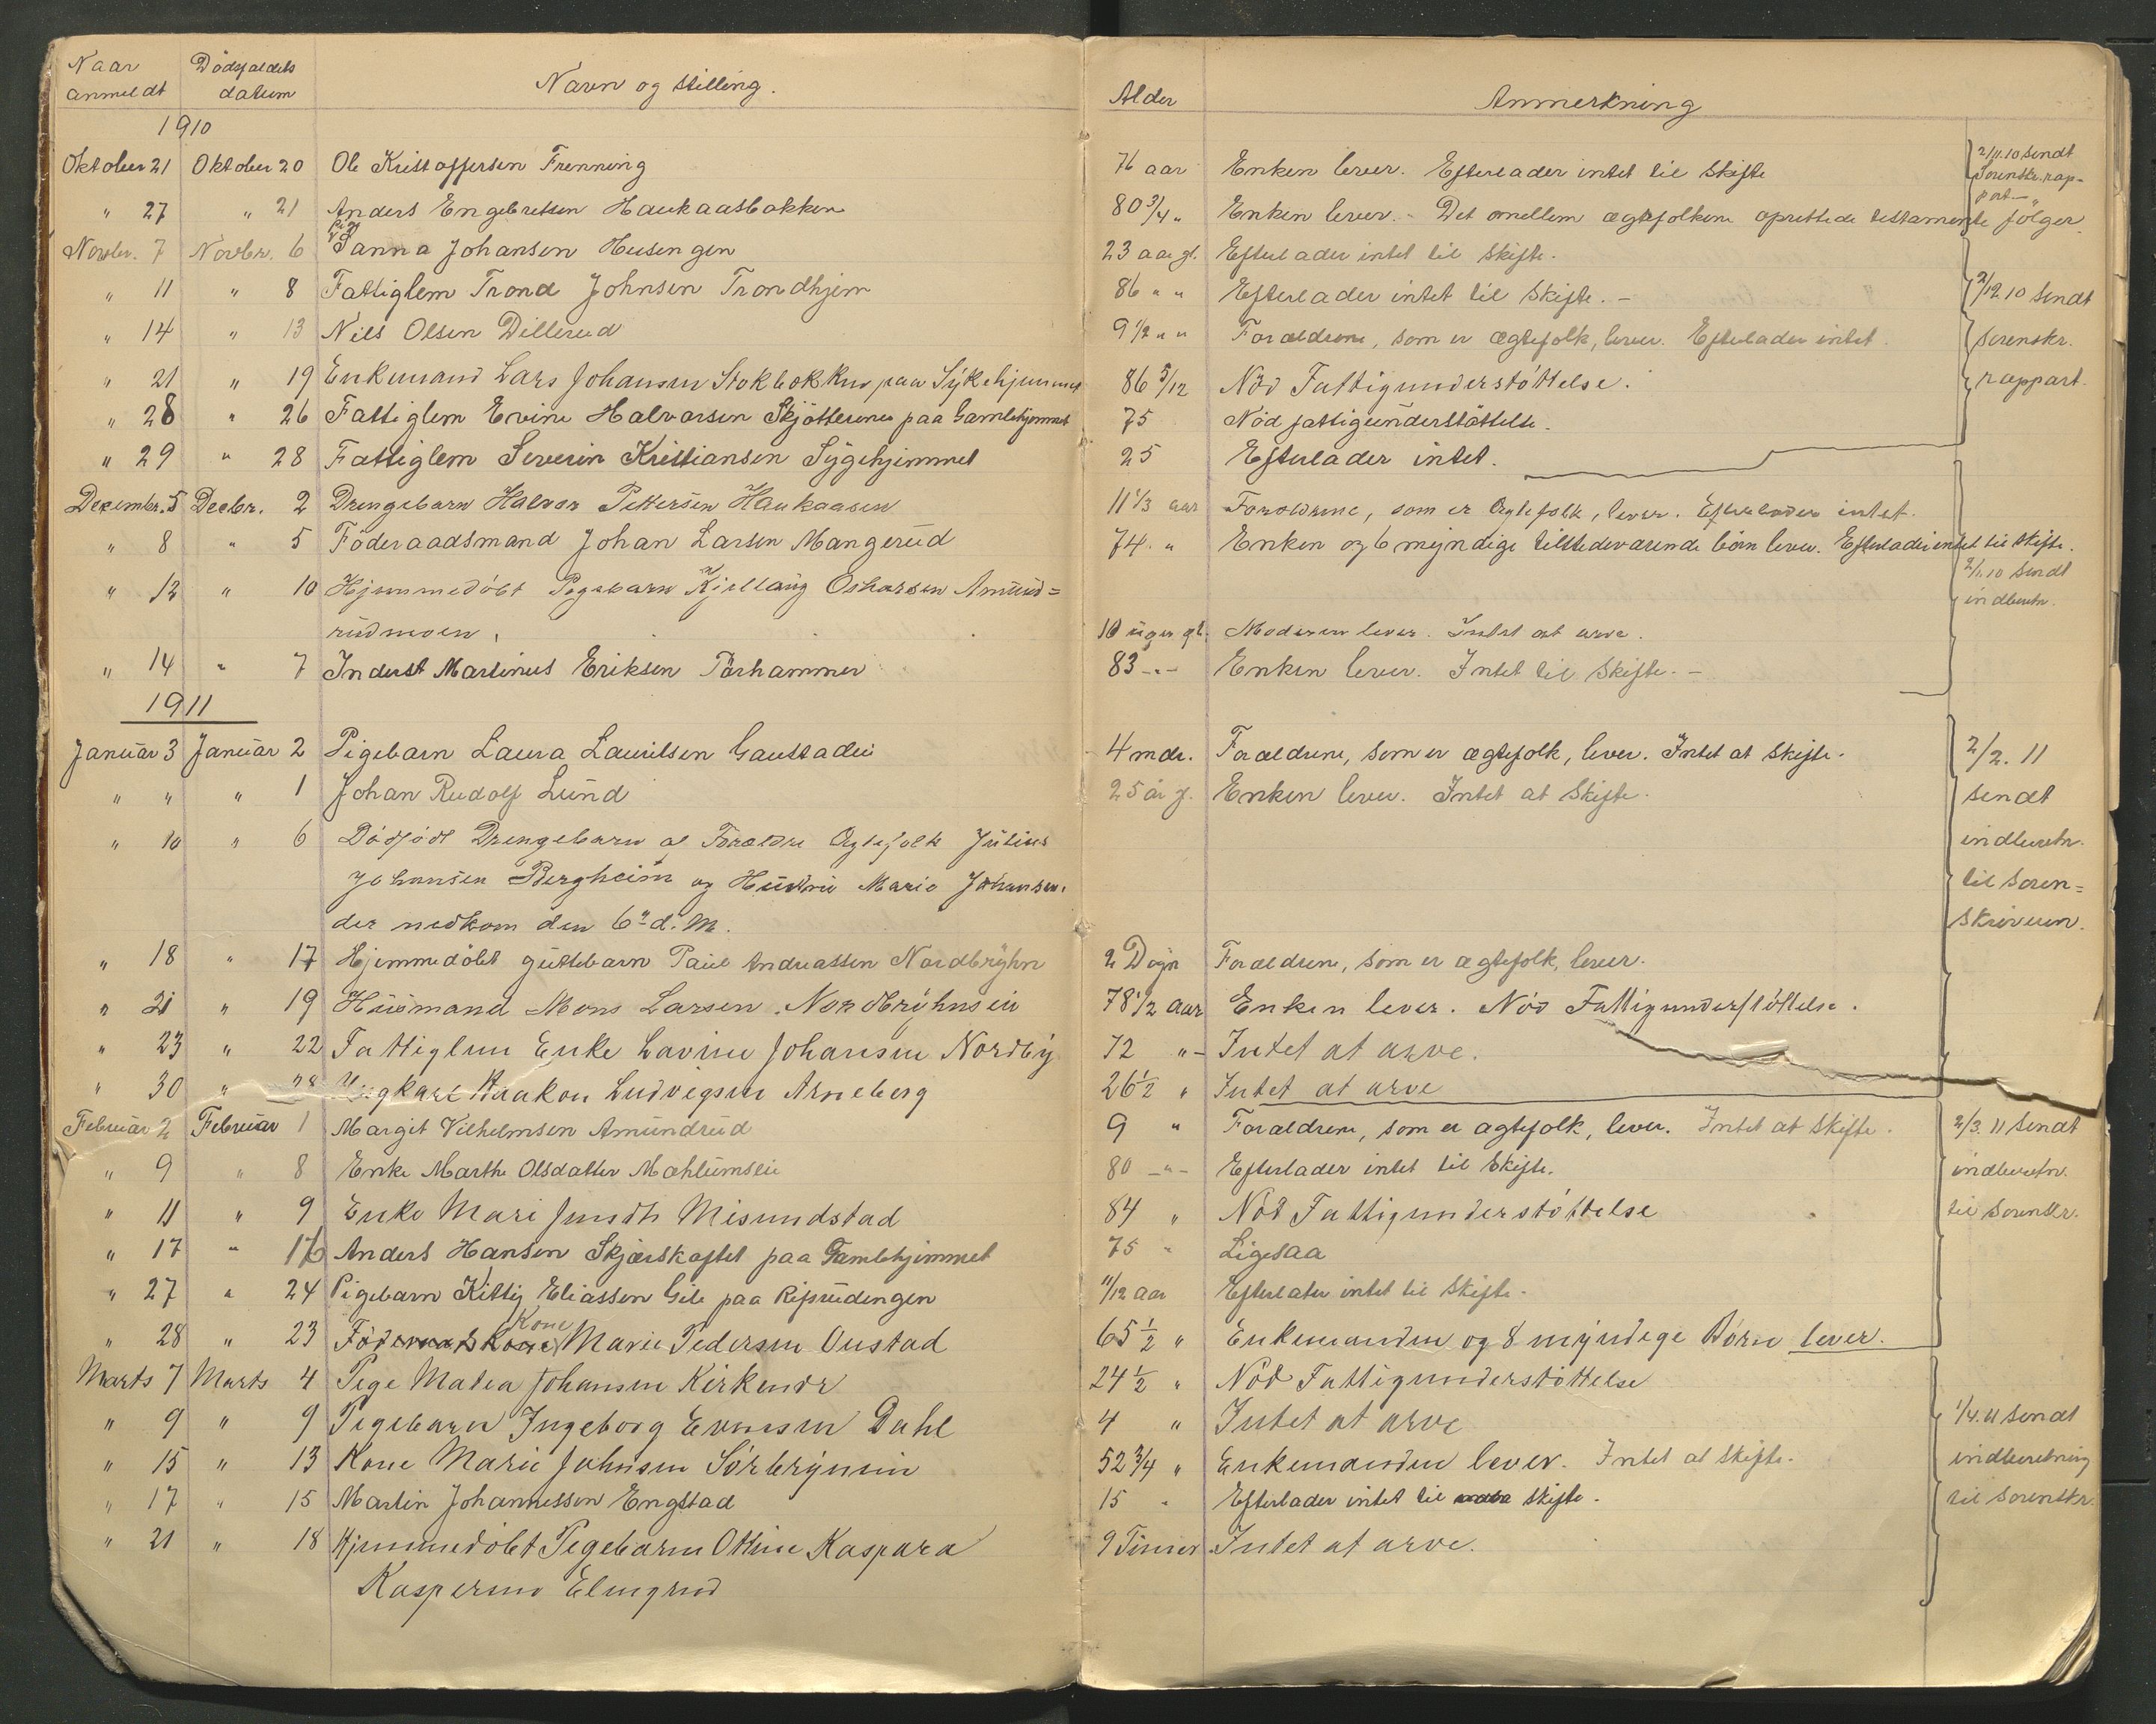 Naar Dødsfaldets Navn og stilling. Alder Anmerkning
anmeldt datum
1910
Oktober 21 Oktober 20 Ole Kristoffersen Frenning 76 aar Enken lever. Efterlader intet til Skifte 2/11.10 sendt
Sorenskr. rap-
port
" 27 " 21 Anders Engebretsen Haukaasbakken 80 3/4 " Enken lever. - Det mellem ægtefolkene oprettede testamente følger.
Novbr. 7 Novbr. 6 Pige Sanna Johansen Husengen 23 aar gl. Efterlader intet til Skifte.
" 11 " 8 Fattiglem Trond Johnsen Trondhjem 86 " " Efterlader intet til Skifte. - 2/12 10 sendt
" 14 " 13 Nils Olsen Dillerud 9 1/2 " " Forældrene, som er ægtefolk, lever. Efterlader intet. sorenskr.
" 21 " 19 Enkemand Lars Johansen Stokbakken paa Sykehjemmet 86 5/12 Nød Fattigunderstøttelse. rappart.
" 28 " 26 Fattiglem Evine Halvorsen Skjötterenes paa Gamlehjemmet 75 Nød fattigunderstøttelse.
" 29 " 28 Fattiglem Severin Kristiansen Sygehjemmet 25 Efterlader intet.
Dezembr. 5 Decbr. 2 Drengebarn Halvor Pettersen Haukaasen 11 1/3 aar Forældrene, som er Ægtefolk, lever. Efterlader intet.
" 8 " 5 Föderaadsmand Johan Larsen Mangerud 74. " Enken og 6 myndige tilstedeværende börn lever. Efterlader intet til Skifte.
2/1.10 sendt
" 12 " 10 Hjemmedöbt Pigebarn Kjellaug Oskarsen Amund= indberetn.
rudmoen. 10 uger gl. Moderen lever. Intet at arve.
" 14 " 7 Inderst Martinus Eriksen Torhammer 83 -"- Enken lever. Intet til Skifte. -
1911
Januar 3 Januar 2 Pigebarn Laura Lauritsen Gaustadei 4 mdr. Forældrene, som er ægtefolk, lever. Intet at skifte. 2/2. 11
" " " 1 Johan Rudolf Lund 25 år g. Enken lever. Intet at skifte. sendt
" 10 " 6 Dødfödt Drengebarn af Forældre Ægtefolk Julius indberetn.
Johansen Bergheim og Hustru Marie Johansen. til soren=
der nedkom den 6" d. M. skriveren.
" 18 " 17 Hjemmedöbt guttebarn Paul Andreassen Nordbryhn 2 Døgn Forældrene, som er ægtefolk, lever.
" 21 " 19 Husmand Mons Larsen Nordbryhnsei 78 1/2 aar Enken lever. Nød Fattigunderstöttelse.
" 23 " 22 Fattiglem Enke Lavine Johansen Nordby 72 "- Intet at arve.
" 30 " 28 Ungkarl Haakon Ludvigsen Arneberg 26 1/2 " Intet at arve
Februar 2 Februar 1 Margit Vilhelmsen Amundrud 9 " Forældrene, som er ægtefolk, lever. Intet at skifte. 2/3. 11 sendt
" 9 " 8 Enke Marthe Olsdatter Mahlumseie 80 -"- Efterlader intet til Skifte. indberetn.
" 11 " 9 Enke Mari Misundstad 84 " Nød Fattigunderstöttelse til sorenskr.
" 17 " 16 Anders Hansen Skjærskaftet paa Gamlehjemmet 75 " Ligesaa
" 27 " 24 Pigebarn Kitty Eliassen Gile paa Risrudengen 11/12 aar Efterlater intet til Skifte.
" 28 " 23 Kone Marie Pedersen Onstad 65 1/2 " Enkemanden og 8 myndige Börn lever.
Marts 7 Marts 4 Pige Matea Johansen Kirkenær 24 1/2 " Nød Fattigunderstöttelse
" 9 " 9 Pigebarn Ingeborg Evensen Dahl 4 " Intet at arve 1/4. 11 sendt
" 15 " 13 Kone Marie Johnsen Sörbrynsei 52 3/4 " Enkemanden lever. Intet at skifte. indberetning
" 17 " 15 Martin Johannessen Engstad 15 " Efterlader intet til skifte. til sorenskr.
" 21 " 18 Hjemmedöbt Pigebarn Ottine Kaspara 9 Timer Intet at arve.
Kaspersen